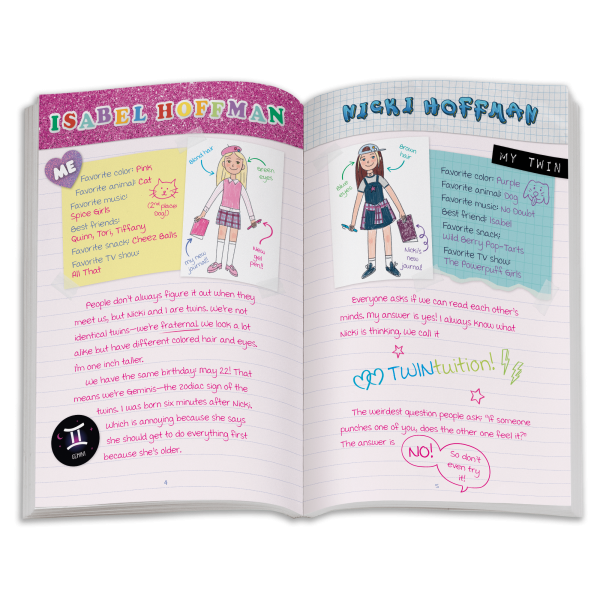 ISABEL HOFFMAN
ME
Favorite color: Pink
Favorite animal: Cat
(2nd place: Dog!)
Favorite music:
Spice Girls
Best friends:
Quinn, Tori, Tiffany
Favorite snack: Cheez Balls
Favorite TV show:
All That
Blond hair
Green eyes
my new journal!
New gel pen!!
People don't always figure it out when they
meet us, but Nicki and I are twins. We're not
identical twins—we're fraternal. We look a lot
alike but have different colored hair and eyes.
I'm one inch taller.
We have the same birthday: May 22! That
means we're Geminis—the zodiac sign of the
twins. I was born six minutes after Nicki,
which is annoying because she says
she should get to do everything first
because she's older.
GEMINI
4
NICKI HOFFMAN
MY TWIN
Brown hair
Blue eyes
Nicki's new journal!
Favorite color: Purple
Favorite animal: Dog
Favorite music: No Doubt
Best friend: Isabel
Favorite snack:
Wild Berry Pop-Tarts
Favorite TV show:
The Powerpuff Girls
Everyone asks if we can read each other's
minds. My answer is yes! I always know what
Nicki is thinking. We call it
TWINtuition!
The weirdest question people ask: "If someone
punches one of you, does the other one feel it?"
The answer is
NO!
So don't
even try
it!
5